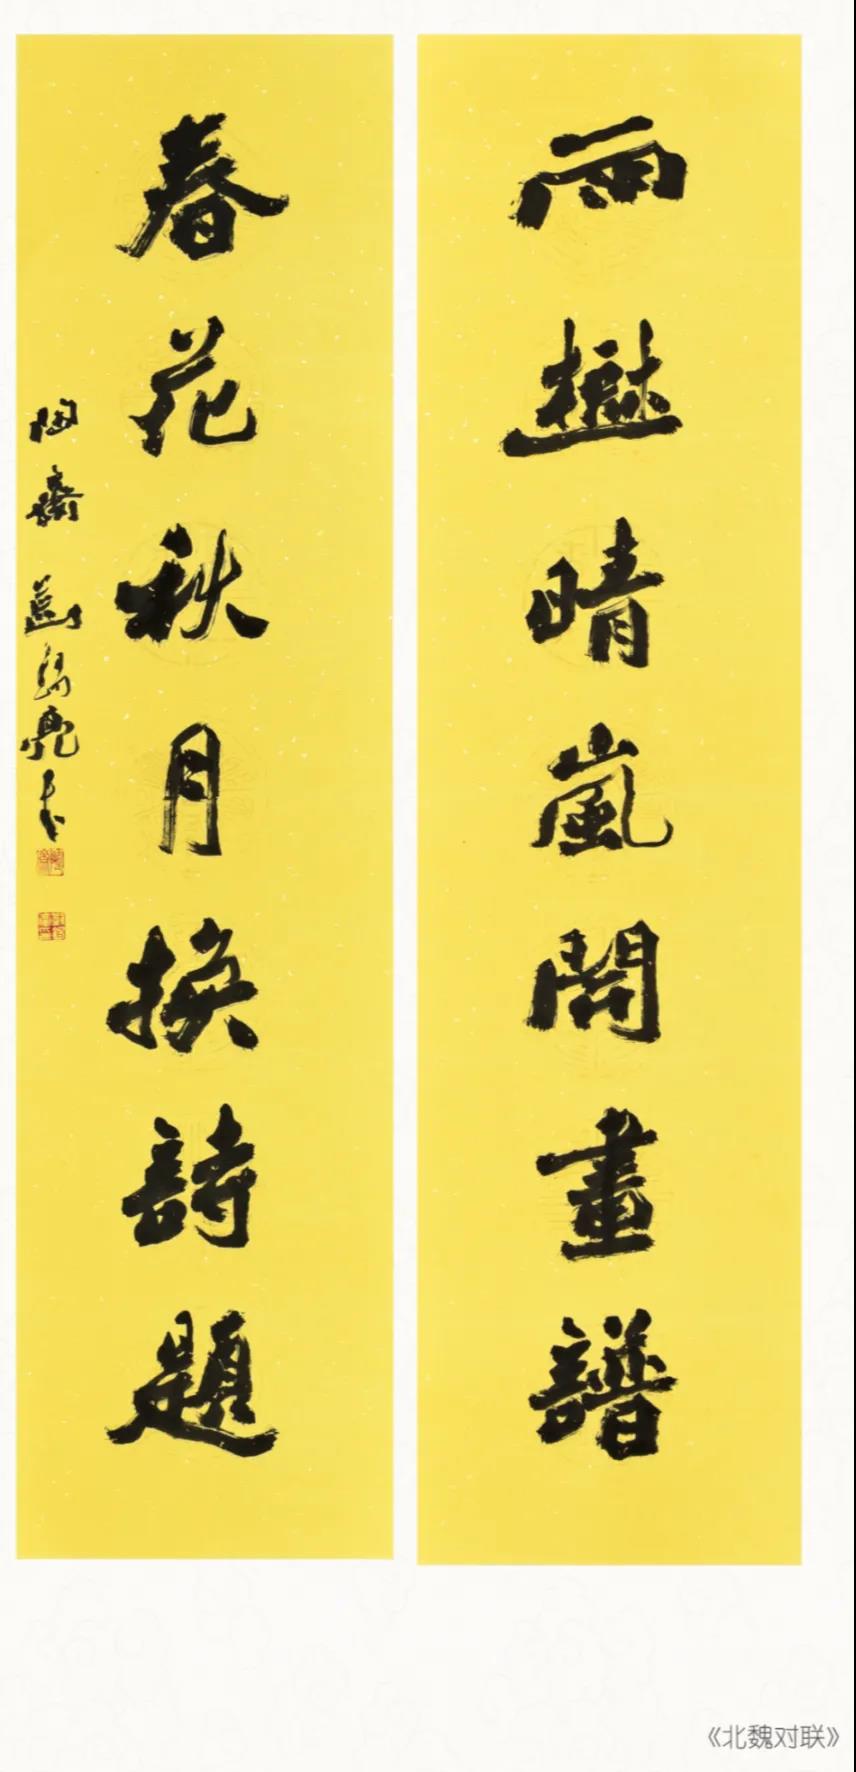 雨樾晴嵐開畫譜
春花秋月換詩題
陶齋
《北魏对联》